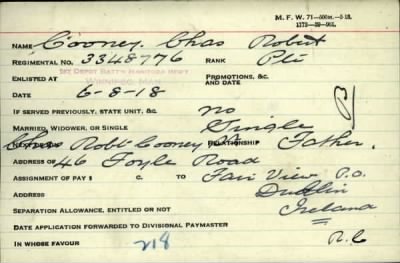 M. F. W. 71—500M.—5-18.
1772—39—901.
NAME Cooney, Chas Robert
REGIMENTAL NO. 3348776 RANK Pte
ENLISTED AT 1ST DEPOT BATT'N MANITOBA REGT PROMOTIONS, &C.
WINNIPEG, MAN. AND DATE
DATE 6-8-18
IF SERVED PREVIOUSLY, STATE UNIT, &C. no
MARRIED, WIDOWER, OR SINGLE Single
NEXT Robt Cooney RELATIONSHIP Father.
ADDRESS OF 46 Foyle Road
ASSIGNMENT OF PAY $ C. TO Fair View P.O.
ADDRESS Dublin
SEPARATION ALLOWANCE, ENTITLED OR NOT Ireland
DATE APPLICATION FORWARDED TO DIVISIONAL PAYMASTER
IN WHOSE FAVOUR 218 R.C